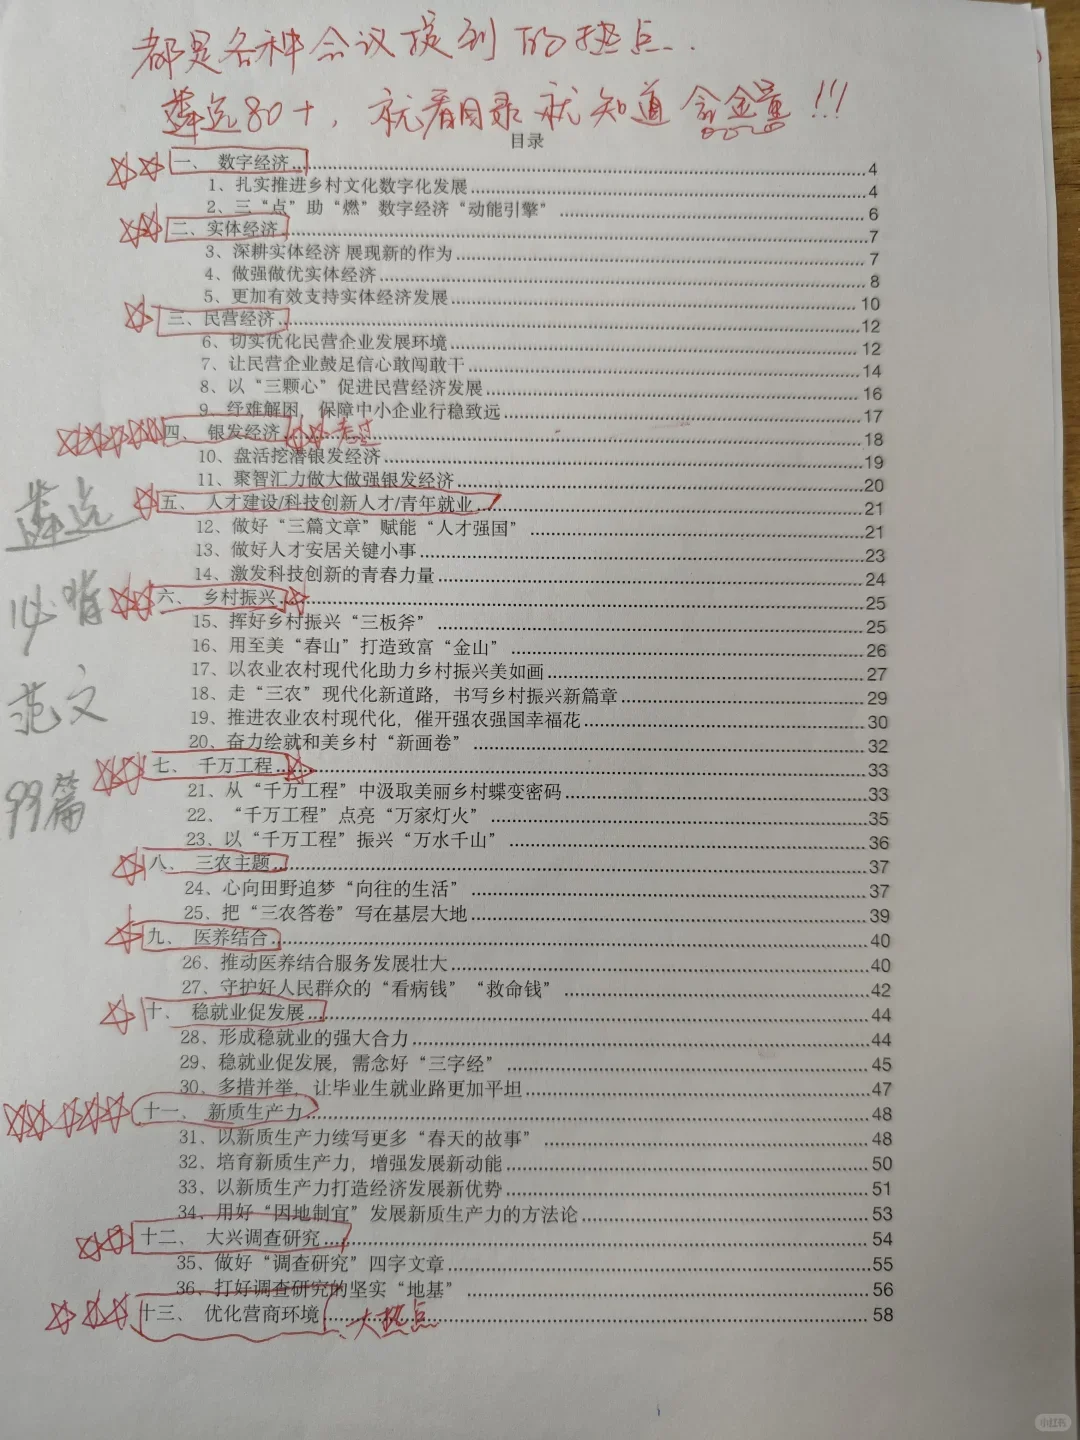 都是各种会议提到的热点.
遴选80+，就看目录就知道含金量!!!
目录
一、 数字经济 4
1、扎实推进乡村文化数字化发展 4
2、三“点”助“燃”数字经济“动能引擎” 6
二、实体经济 7
3、深耕实体经济 展现新的作为 7
4、做强做优实体经济 8
5、更加有效支持实体经济发展 10
三、民营经济 12
6、切实优化民营企业发展环境 12
7、让民营企业鼓足信心敢闯敢干 14
8、以“三颗心”促进民营经济发展 16
9、纾难解困，保障中小企业行稳致远 17
四、 银发经济 考过 18
10、盘活挖潜银发经济 19
11、聚智汇力做大做强银发经济 20
五、 人才建设/科技创新人才/青年就业 21
12、做好“三篇文章”赋能“人才强国” 21
13、做好人才安居关键小事 23
14、激发科技创新的青春力量 24
六、 乡村振兴 25
15、挥好乡村振兴“三板斧” 25
16、用至美“春山”打造致富“金山” 26
17、以农业农村现代化助力乡村振兴美如画 27
18、走“三农”现代化新道路，书写乡村振兴新篇章 29
19、推进农业农村现代化，催开强农强国幸福花 30
20、奋力绘就和美乡村“新画卷” 32
七、 千万工程 33
21、从“千万工程”中汲取美丽乡村蝶变密码 33
22、“千万工程”点亮“万家灯火” 35
23、以“千万工程”振兴“万水千山” 36
八、 三农主题 37
24、心向田野追梦“向往的生活” 37
25、把“三农答卷”写在基层大地 39
九、 医养结合 40
26、推动医养结合服务发展壮大 40
27、守护好人民群众的“看病钱”“救命钱” 42
十、 稳就业促发展 44
28、形成稳就业的强大合力 44
29、稳就业促发展，需念好“三字经” 45
30、多措并举，让毕业生就业路更加平坦 47
十一、 新质生产力 48
31、以新质生产力续写更多“春天的故事” 48
32、培育新质生产力，增强发展新动能 50
33、以新质生产力打造经济发展新优势 51
34、用好“因地制宜”发展新质生产力的方法论 53
十二、 大兴调查研究 54
35、做好“调查研究”四字文章 55
36、打好调查研究的坚实“地基” 56
十三、 优化营商环境 大热点 58
遴选
必背
范文
99篇
小红书